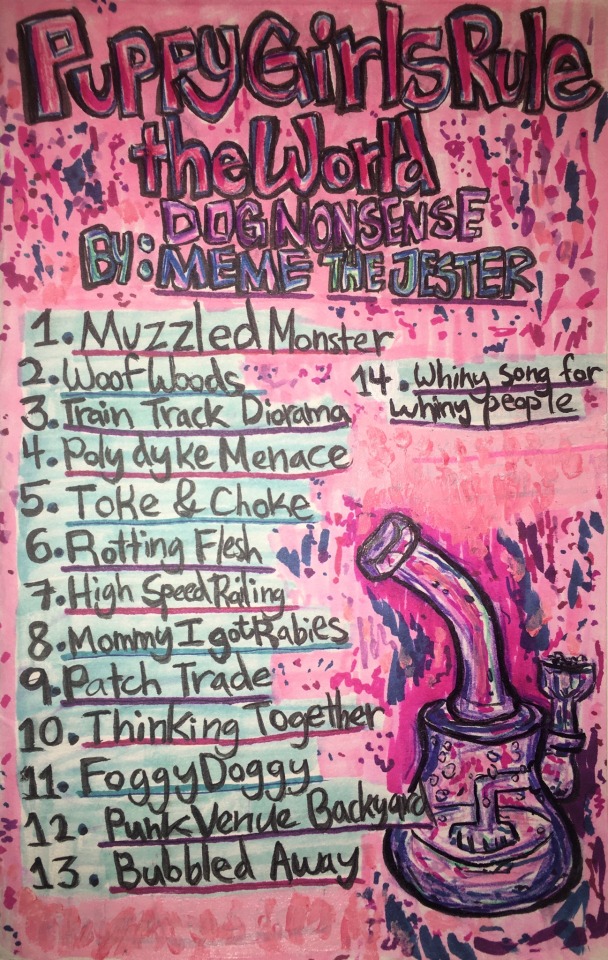 Puppy Girls Rule
the World
DOG NONSENSE
BY: MEME THE JESTER
1. Muzzled Monster
2. Woof Woods
3. Train Track Diorama
4. Poly dyke Menace
5. Toke & Choke
6. Rotting Flesh
7. High Speed Railing
8. Mommy I got Rabies
9. Patch Trade
10. Thinking Together
11. Foggy Doggy
12. Punk Venue Backyard
13. Bubbled Away
14. Whiny song for
whiny people